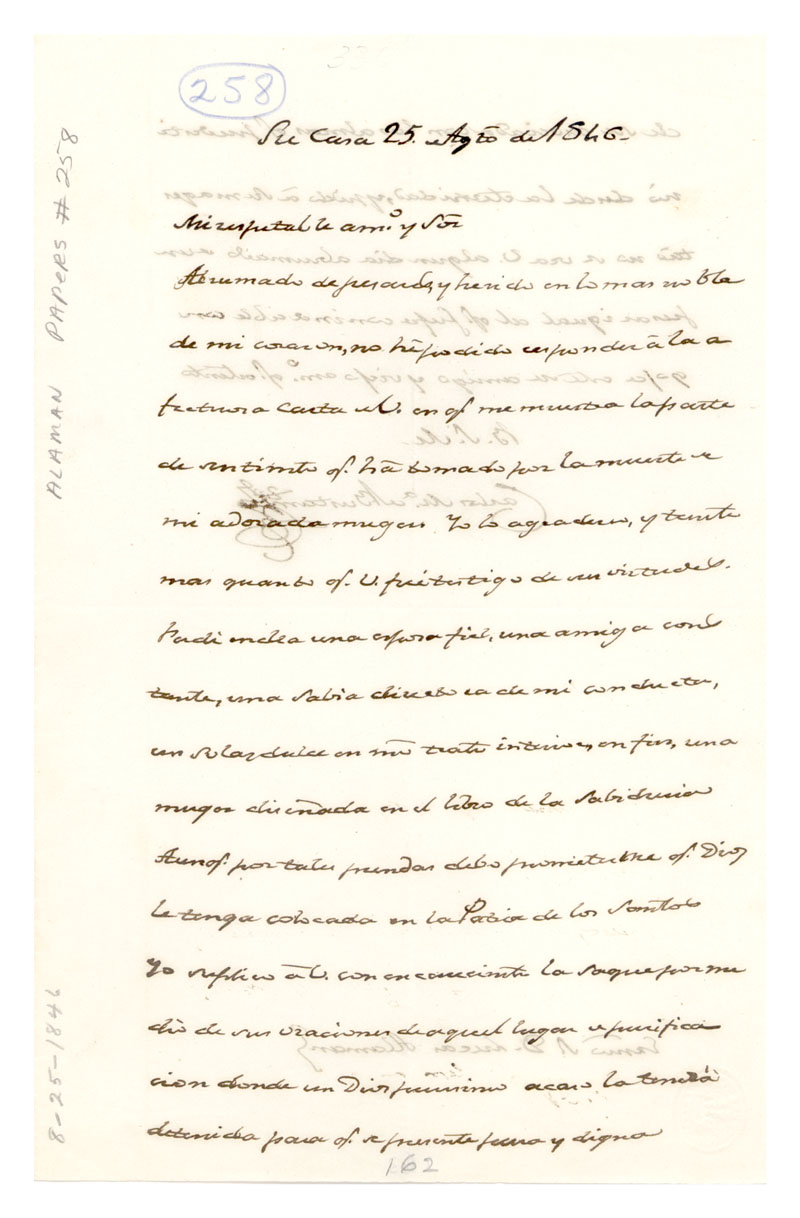 258
Su Casa 25. Agto de 1846.
Mi respetable amo. y Sor
Abrumado de pesares, y herido en lo mas noble
de mi corazon, no hé podido responder â la a
fectuosa Carta de V. en q. me muestra la parte
de sentimto q. hâ tomado por la muerte de
mi adorada muger. Yo lo agradesco, y tanto
mas quanto q. V. fué testigo de sus virtudes.
Perdi en ella una esposa fiel, una amiga cons
tante, una sabia directora de mi conducta,
un solaz dulce en mi trato interior, en fin, una
muger diseñada en el libro de la Sabiduria
Aunq. por tales prendas debo prometerme q. Dios
le tenga colocada en la Patria de los Santos
Yo suplico â V. con encarecimto la saque por me
dio de sus oraciones de aquel lugar de purifica
cion donde un Dios purisimo acaso la tendrá
detenida para q. se presente pura y digna
162
ALAMAN PAPERS # 258
8-25-1846